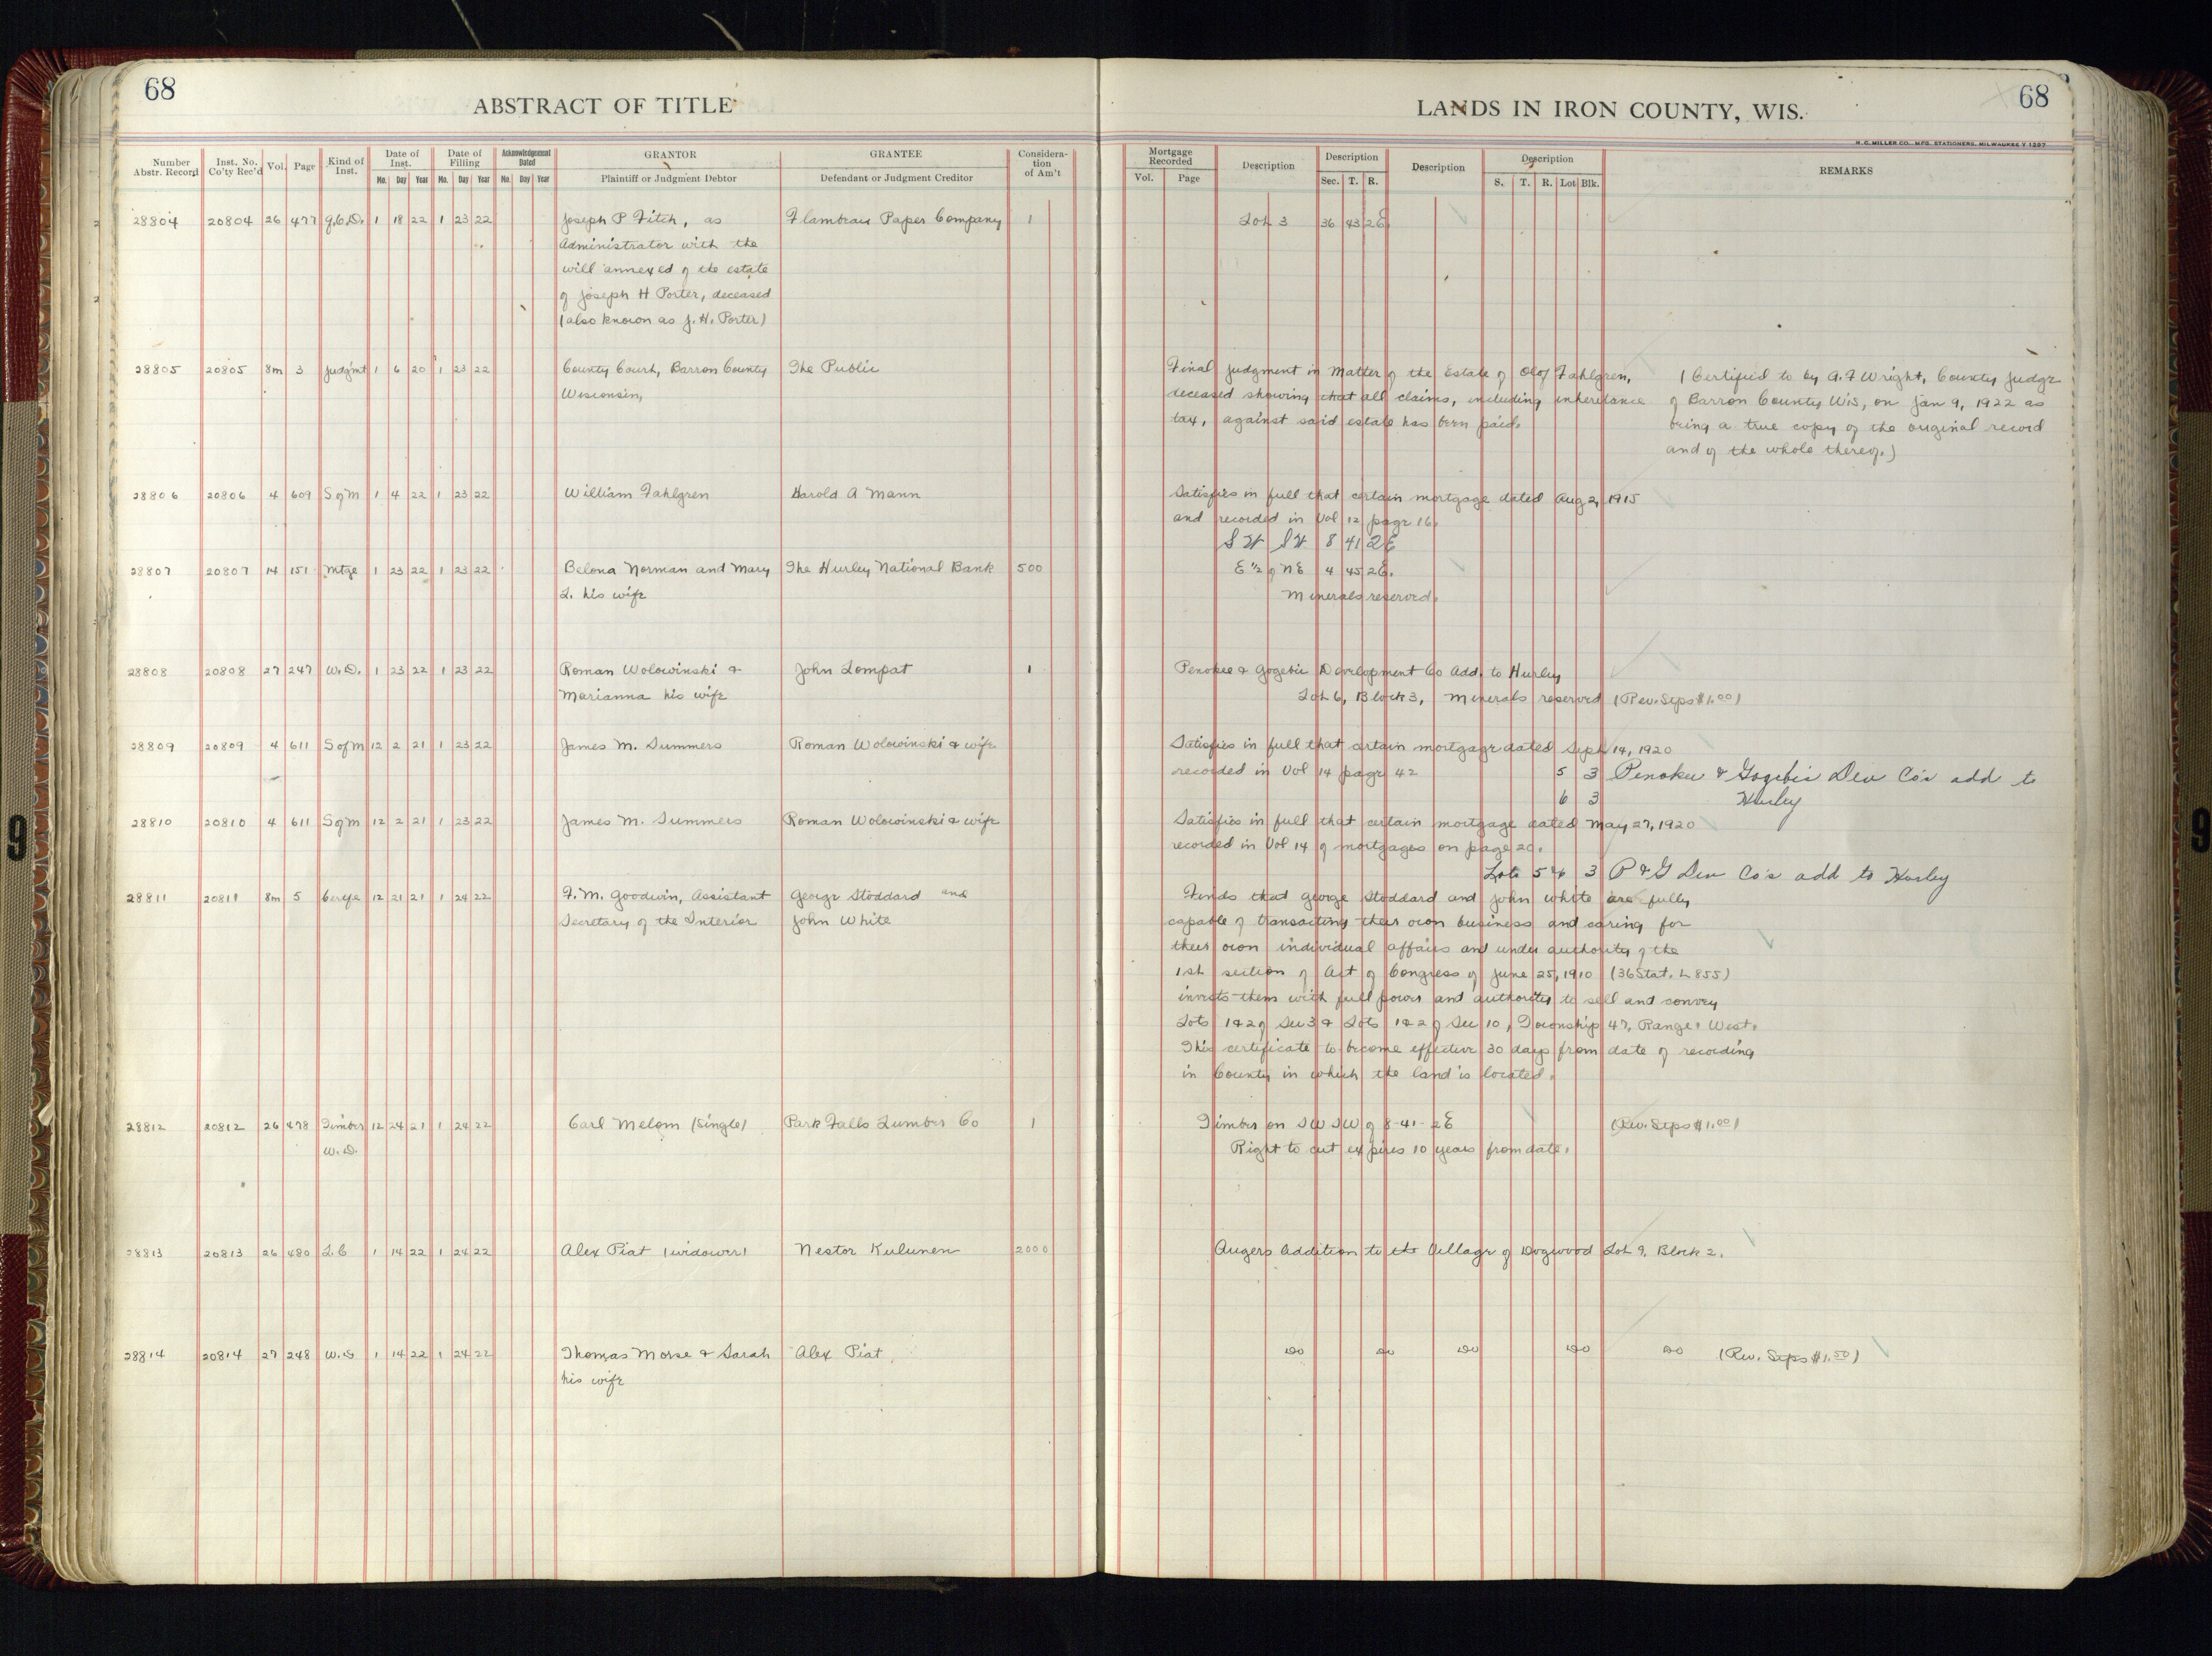 68
ABSTRACT OF TITLE
Number Abstr. Record | Inst. No. Co'ty Rec'd | Vol. | Page | Kind of Inst. | Date of Inst. Mo. Day Year | Date of Filling Mo. Day Year | Acknowledgement Dated Mo. Day Year | GRANTOR Plaintiff or Judgment Debtor | GRANTEE Defendant or Judgment Creditor | Consideration of Am't
28804 20804 26 477 1 18 22 1 23 22 Joseph P Fitch, as Flambeau Paper Company 1
Administrator with the
will annexed of the estate
of Joseph H Porter, deceased
(also known as J. H. Porter)
28805 20805 8m 3 Judgmt 1 6 20 1 23 22 County Court, Barron County The Public
Wisconsin,
28806 20806 4 609 S of M 1 4 22 1 23 22 William Fahlgren Harold A Mann
28807 20807 14 151 Mtge 1 23 22 1 23 22 Belona Norman and Mary The Hurley National Bank 500
L. his wife
28808 20808 27 247 W.D. 1 23 22 1 23 22 Roman Wolowinski & John Lompat 1
Marianna his wife
28809 20809 4 611 S of M 12 2 21 1 23 22 James M. Summers Roman Wolowinski & wife
28810 20810 4 611 S of M 12 2 21 1 23 22 James M. Summers Roman Wolowinski & wife
28811 20811 8m 5 12 21 21 1 24 22 F. M. Goodwin, Assistant George Stoddard and
Secretary of the Interior John White
28812 20812 26 478 Timber 12 24 21 1 24 22 Carl Melom (Single) Park Falls Lumber Co 1
W.D.
28813 20813 26 480 L.C 1 14 22 1 24 22 Alex Piat (widower) Nestor Kulunen 2000
28814 20814 27 248 W.D 1 14 22 1 24 22 Thomas Morse & Sarah Alex Piat
his wife
68
LANDS IN IRON COUNTY, WIS.
H. C. MILLER CO. MFG. STATIONERS, MILWAUKEE
Mortgage Recorded Vol. Page | Description | Description Sec. T. R. | Description | Description S. T. R. Lot Blk. | REMARKS
Lot 3 36 43 2E
Final Judgment in Matter of the Estate of Olof Fahlgren, (Certified to by A. F Wright, County Judge
deceased showing that all claims, including inheritance of Barron County Wis, on Jan 9, 1922 as
tax, against said estate has been paid. being a true copy of the original record
and of the whole thereof.)
Satisfies in full that certain mortgage dated Aug 2, 1915
and recorded in Vol 12 page 16.
SW SW 8 41 2E
E 1/2 of NE 4 45 2E.
Minerals reserved.
Penokee & Gogebic Development Co Add. to Hurley
Lot 6, Block 3, Minerals reserved (Rev. Stps $1.00)
Satisfies in full that certain mortgage dated Sept 14, 1920
recorded in Vol 14 page 42 5 3 Penokee & Gogebic Dev Co's add to
6 3 Hurley
Satisfies in full that certain mortgage dated May 27, 1920
recorded in Vol 14 of mortgages on page 20.
Lots 5 & 6 3 P & G Dev Co's add to Hurley
Finds that George Stoddard and John White are fully
capable of transacting their own business and caring for
their own individual affairs and under authority of the
1st section of Act of Congress of June 25, 1910 (36 Stat. L 855)
invests them with full power and authority to sell and convey
Lots 1 & 2 of Sec 3 & Lots 1 & 2 of Sec 10, Township 47, Range 1 West.
This certificate to become effective 30 days from date of recording
in County in which the land is located.
Timber on SW SW of 8-41-2E (Rev. Stps $1.00)
Right to cut expires 10 years from date.
Augers Addition to the Village of Dogwood Lot 9, Block 2.
Do Do Do Do Do (Rev. Stps $1.50)
9
9